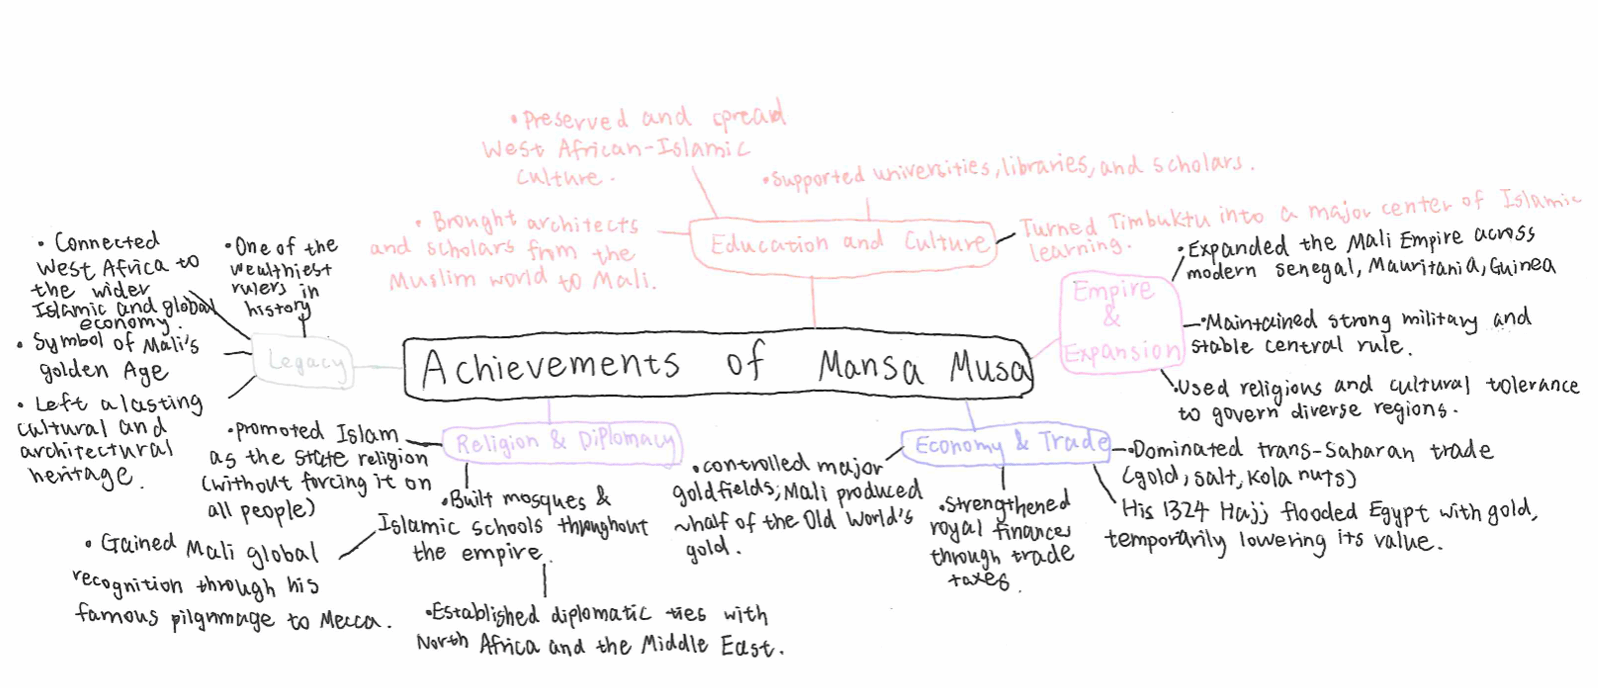 Achievements of Mansa Musa
Education and Culture
•Preserved and spread
West African-Islamic
culture.
•Supported universities, libraries, and scholars.
• Brought architects
and scholars from the
Muslim world to Mali.
Turned Timbuktu into a major center of Islamic
learning.
Empire
&
Expansion
•Expanded the Mali Empire across
modern senegal, Mauritania, Guinea
•Maintained strong military and
stable central rule.
•Used religious and cultural tolerance
to govern diverse regions.
Legacy
• Connected
West Africa to
the wider
Islamic and global
economy.
•One of the
wealthiest
rulers in
history
• Symbol of Mali's
golden Age
• Left a lasting
cultural and
architectural
heritage.
Religion & Diplomacy
•promoted Islam
as the state religion
(without forcing it on
all people)
•Built mosques &
Islamic schools throughout
the empire.
• Gained Mali global
recognition through his
famous pilgrimage to Mecca.
•Established diplomatic ties with
North Africa and the Middle East.
Economy & Trade
•controlled major
goldfields; Mali produced
~half of the Old World's
gold.
•Strengthened
royal finances
through trade
taxes.
•Dominated trans-Saharan trade
(gold, salt, Kola nuts)
His 1324 Hajj flooded Egypt with gold,
temporarily lowering its value.